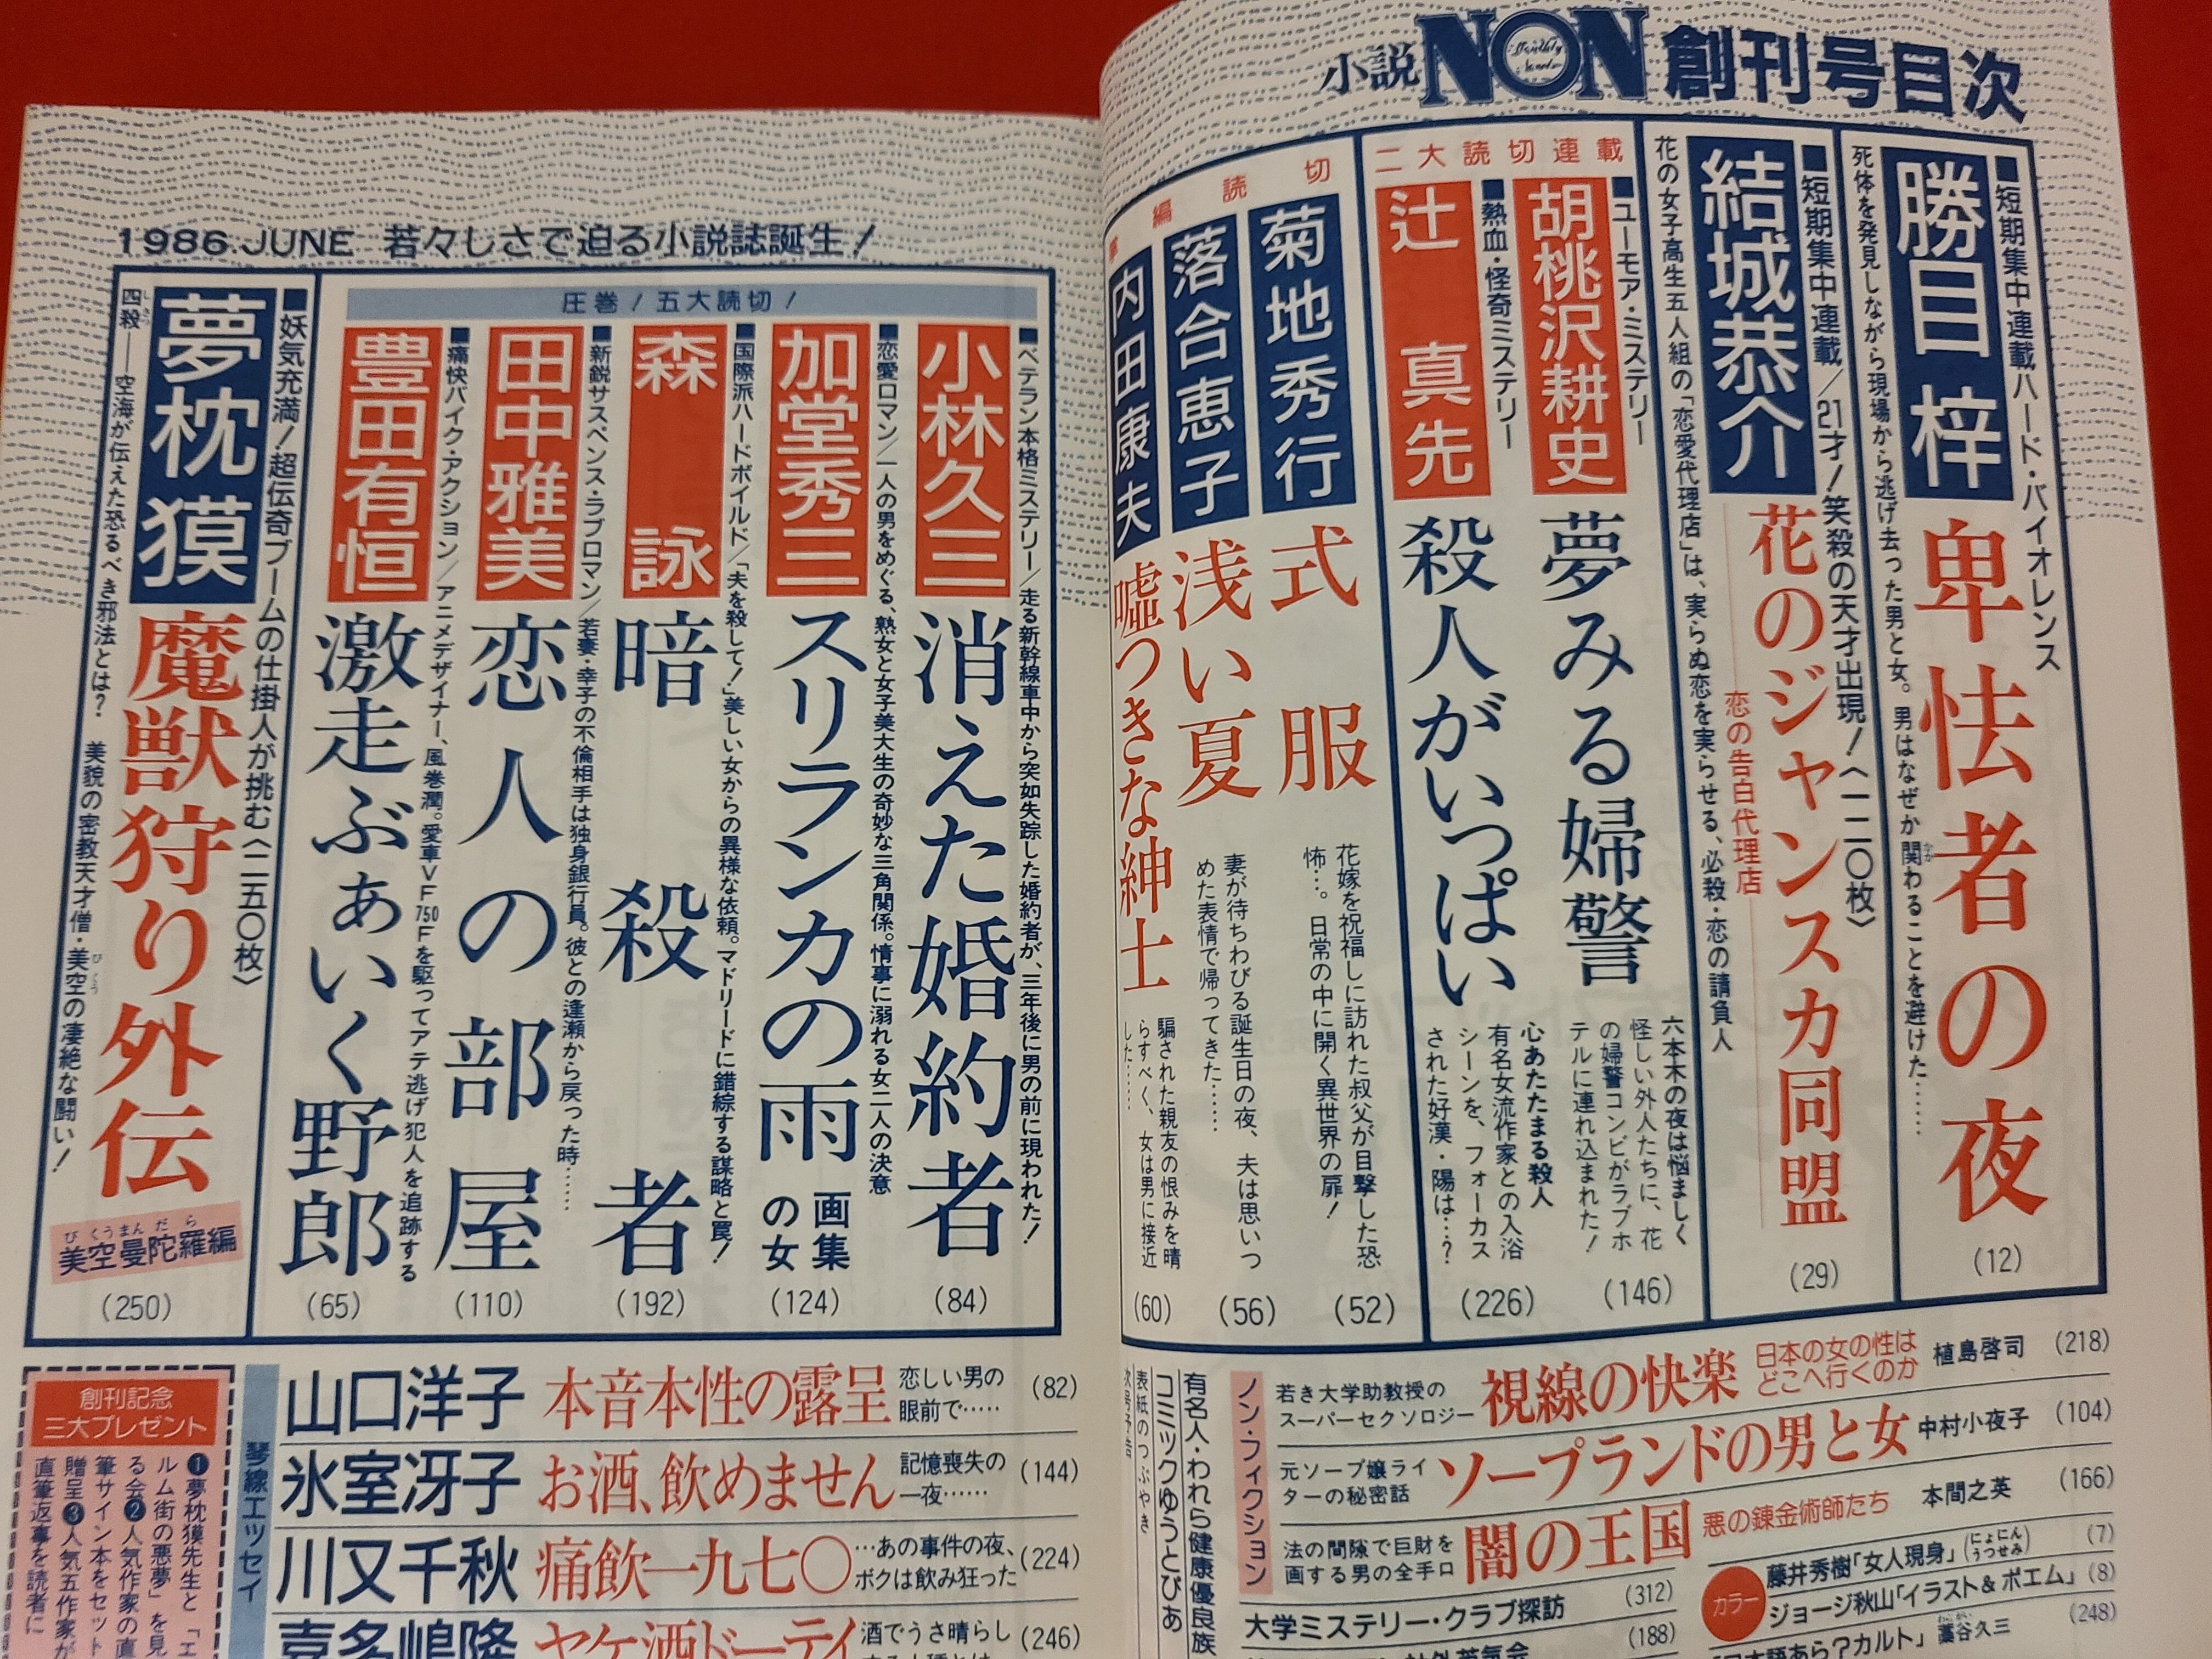 小説NON創刊号目次
■短期集中連載ハード・バイオレンス
勝目 梓
卑怯者の夜
死体を発見しながら現場から逃げ去った男と女。男はなぜか関わることを避けた……
(12)
■短期集中連載/21才!笑殺の天才出現!〈一二〇枚〉
結城恭介
花のジャンスカ同盟
恋の告白代理店
花の女子高生五人組の「恋愛代理店」は、実らぬ恋を実らせる、必殺・恋の請負人
(29)
二大読切連載
■ユーモア・ミステリー
胡桃沢耕史
夢みる婦警
六本木の夜は悩ましく
怪しい外人たちに、花
の婦警コンビがラブホ
テルに連れ込まれた!
(146)
■熱血・怪奇ミステリー
辻 真先
殺人がいっぱい
心あたたまる殺人
有名女流作家との入浴
シーンを、フォーカス
された好漢・陽は…?
(226)
編読切
菊地秀行
式服
花嫁を祝福しに訪れた叔父が目撃した恐
怖…。日常の中に開く異世界の扉!
(52)
落合恵子
浅い夏
妻が待ちわびる誕生日の夜、夫は思いつ
めた表情で帰ってきた……
(56)
内田康夫
嘘つきな紳士
騙された親友の恨みを晴
らすべく、女は男に接近
した……
(60)
1986.JUNE 若々しさで迫る小説誌誕生!
圧巻!五大読切!
■ベテラン本格ミステリー/走る新幹線車中から突如失踪した婚約者が、三年後に男の前に現われた!
小林久三
消えた婚約者
(84)
■恋愛ロマン/一人の男をめぐる、熟女と女子美大生の奇妙な三角関係。情事に溺れる女二人の決意
加堂秀三
スリランカの雨
画集
の女
(124)
■国際派ハードボイルド/「夫を殺して!」美しい女からの異様な依頼。マドリードに錯綜する謀略と罠!
森 詠
暗殺者
(192)
■新鋭サスペンス・ラブロマン/若妻・幸子の不倫相手は独身銀行員。彼との逢瀬から戻った時……
田中雅美
恋人の部屋
(110)
■痛快バイク・アクション/アニメデザイナー、風巻潤。愛車VF750Fを駆ってアテ逃げ犯人を追跡する
豊田有恒
激走ぶぁいく野郎
(65)
■妖気充満!超伝奇ブームの仕掛人が挑む〈二五〇枚〉
夢枕 獏
魔獣狩り外伝
美空曼陀羅編
びくうまんだら
四殺――空海が伝えた恐るべき邪法とは? 美貌の密教天才僧・美空の凄絶な闘い!
(250)
ノン・フィクション
若き大学助教授の
スーパーセクソロジー
視線の快楽
日本の女の性は
どこへ行くのか
植島啓司
(218)
元ソープ嬢ライ
ターの秘密話
ソープランドの男と女
中村小夜子
(104)
法の間隙で巨財を
画する男の全手口
闇の王国
悪の錬金術師たち
本間之英
(166)
大学ミステリー・クラブ探訪
(312)
(188)
カラー
藤井秀樹「女人現身」(にょにんうつせみ)
(7)
ジョージ秋山「イラスト&ポエム」
(8)
日本語あら?カルト」藁谷久三
(248)
有名人・われら健康優良族
コミックゆうとぴあ
表紙のつぶやき
次号予告
琴線エッセイ
山口洋子
本音本性の露呈
恋しい男の
眼前で……
(82)
氷室冴子
お酒、飲めません
記憶喪失の
一夜……
(144)
川又千秋
痛飲一九七〇
…あの事件の夜、
ボクは飲み狂った
(224)
喜多嶋隆
ヤケ酒ドーテイ
酒でうさ晴らし
(246)
創刊記念
三大プレゼント
❶夢枕獏先生と「エ
ルム街の悪夢」を見
る会❷人気作家の直
筆サイン本をセット
贈呈❸人気五作家が
直筆返事を読者に